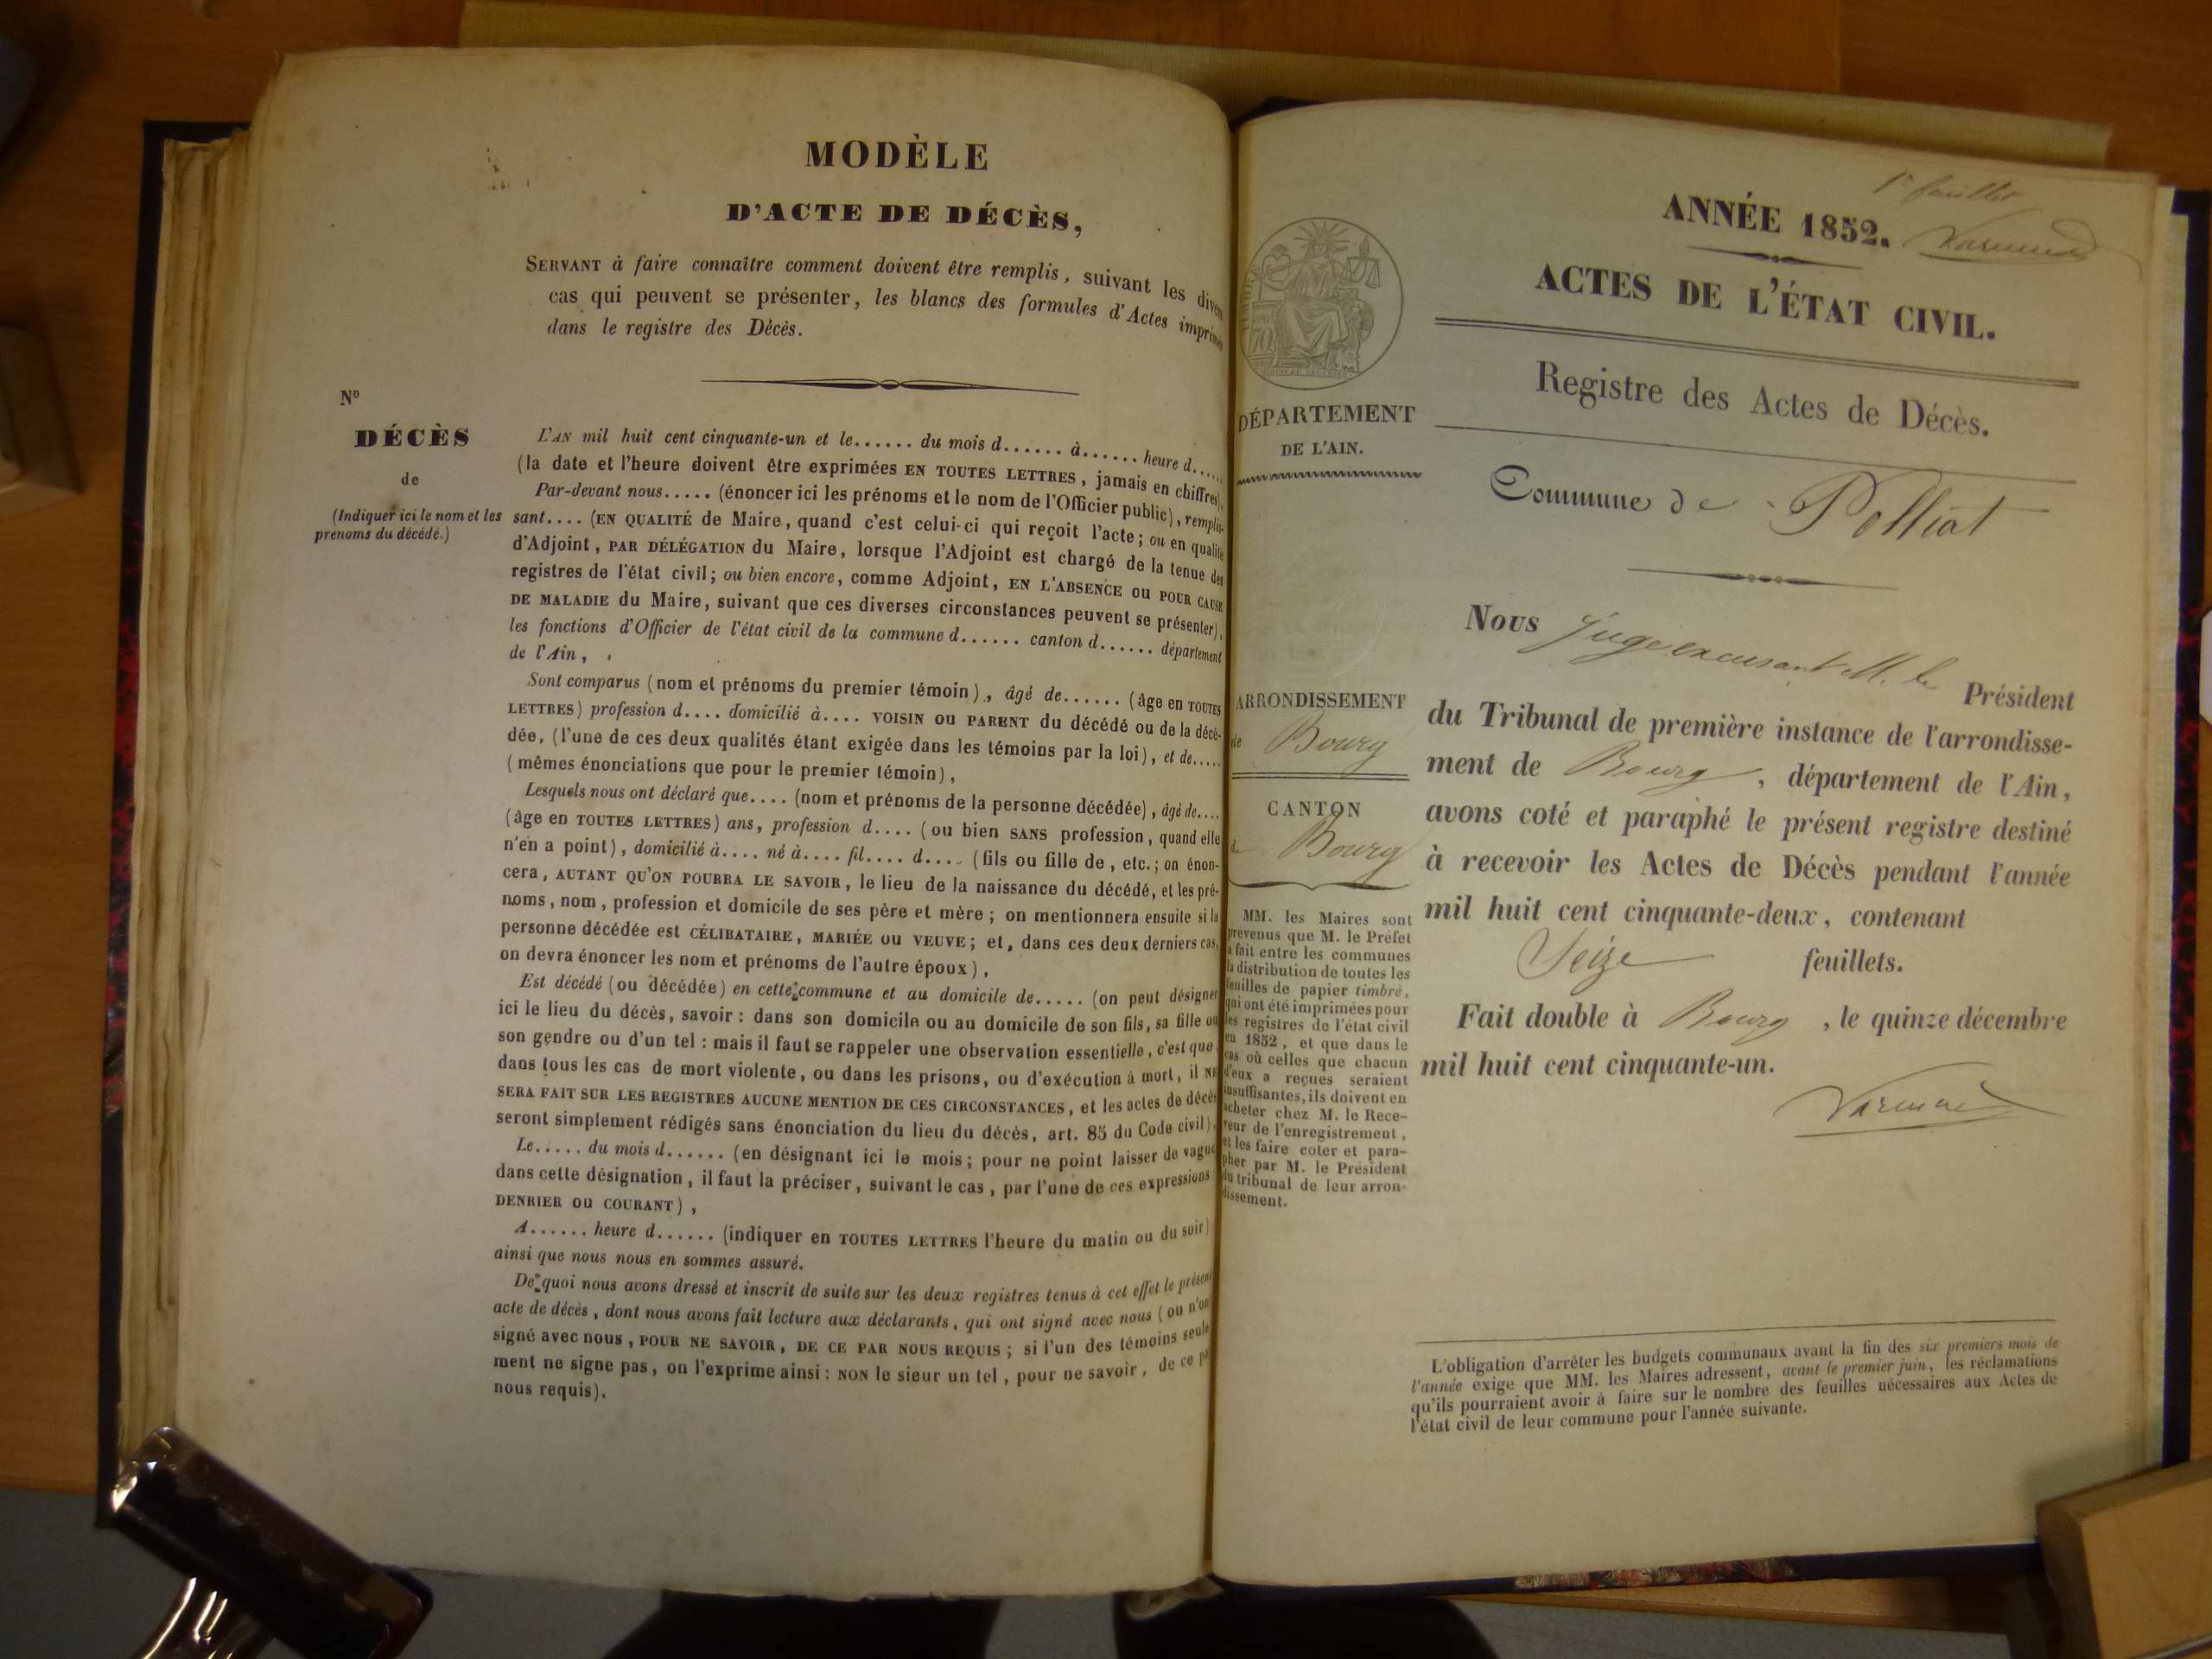 MODÈLE
D'ACTE DE DÉCÈS,
SERVANT à faire connaître comment doivent être remplis, suivant les divers
cas qui peuvent se présenter, les blancs des formules d'Actes imprimés
dans le registre des Décès.
No
DÉCÈS
de
(Indiquer ici le nom et les
prénoms du décédé.)
L'AN mil huit cent cinquante-un et le...... du mois d...... à...... heure d.....
(la date et l'heure doivent être exprimées EN TOUTES LETTRES, jamais en chiffres).
Par-devant nous..... (énoncer ici les prénoms et le nom de l'Officier public), remplis-
sant.... (EN QUALITÉ de Maire, quand c'est celui-ci qui reçoit l'acte; ou en qualité
d'Adjoint, PAR DÉLÉGATION du Maire, lorsque l'Adjoint est chargé de la tenue des
registres de l'état civil; ou bien encore, comme Adjoint, EN L'ABSENCE OU POUR CAUSE
DE MALADIE du Maire, suivant que ces diverses circonstances peuvent se présenter),
les fonctions d'Officier de l'état civil de la commune d...... canton d...... département
de l'Ain,
Sont comparus (nom et prénoms du premier témoin), âgé de...... (âge en TOUTES
LETTRES) profession d.... domicilié à.... VOISIN OU PARENT du décédé ou de la décé-
dée, (l'une de ces deux qualités étant exigée dans les témoins par la loi), et de.....
(mêmes énonciations que pour le premier témoin),
Lesquels nous ont déclaré que.... (nom et prénoms de la personne décédée), âgé de....
(âge en TOUTES LETTRES) ans, profession d.... (ou bien SANS profession, quand elle
n'en a point), domicilié à.... né à.... fil.... d.... (fils ou fille de, etc.; on énon-
cera, AUTANT QU'ON POURRA LE SAVOIR, le lieu de la naissance du décédé, et les pré-
noms, nom, profession et domicile de ses père et mère; on mentionnera ensuite si la
personne décédée est CÉLIBATAIRE, MARIÉE OU VEUVE; et, dans ces deux derniers cas,
on devra énoncer les nom et prénoms de l'autre époux),
Est décédé (ou décédée) en cette commune et au domicile de..... (on peut désigner
ici le lieu du décès, savoir: dans son domicile ou au domicile de son fils, sa fille ou
son gendre ou d'un tel: mais il faut se rappeler une observation essentielle, c'est que
dans tous les cas de mort violente, ou dans les prisons, ou d'exécution à mort, il NE
SERA FAIT SUR LES REGISTRES AUCUNE MENTION DE CES CIRCONSTANCES, et les actes de décès
seront simplement rédigés sans énonciation du lieu du décès, art. 85 du Code civil),
Le..... du mois d...... (en désignant ici le mois; pour ne point laisser de vague
dans cette désignation, il faut la préciser, suivant le cas, par l'une de ces expressions
DERNIER OU COURANT),
A...... heure d...... (indiquer en TOUTES LETTRES l'heure du matin ou du soir)
ainsi que nous nous en sommes assuré.
De quoi nous avons dressé et inscrit de suite sur les deux registres tenus à cet effet le présent
acte de décès, dont nous avons fait lecture aux déclarants, qui ont signé avec nous (ou n'ont
signé avec nous, POUR NE SAVOIR, DE CE PAR NOUS REQUIS; si l'un des témoins seule-
ment ne signe pas, on l'exprime ainsi: NON le sieur un tel, pour ne savoir, de ce par
nous requis).
1er feuillet
ANNÉE 1852.
ACTES DE L'ÉTAT CIVIL.
Registre des Actes de Décès.
Commune de Polliat
DÉPARTEMENT
DE L'AIN.
ARRONDISSEMENT
de Bourg
CANTON
de Bourg
MM. les Maires sont
prévenus que M. le Préfet
a fait entre les communes
la distribution de toutes les
feuilles de papier timbré,
qui ont été imprimées pour
les registres de l'état civil
en 1852, et que dans le
cas où celles que chacun
d'eux a reçues seraient
insuffisantes, ils doivent en
acheter chez M. le Rece-
veur de l'enregistrement,
et les faire coter et para-
pher par M. le Président
du tribunal de leur arron-
dissement.
Nous Juge excusant M. le Président
du Tribunal de première instance de l'arrondisse-
ment de Bourg, département de l'Ain,
avons coté et paraphé le présent registre destiné
à recevoir les Actes de Décès pendant l'année
mil huit cent cinquante-deux, contenant
Seize feuillets.
Fait double à Bourg, le quinze décembre
mil huit cent cinquante-un.
L'obligation d'arrêter les budgets communaux avant la fin des six premiers mois de
l'année exige que MM. les Maires adressent, avant le premier juin, les réclamations
qu'ils pourraient avoir à faire sur le nombre des feuilles nécessaires aux Actes de
l'état civil de leur commune pour l'année suivante.